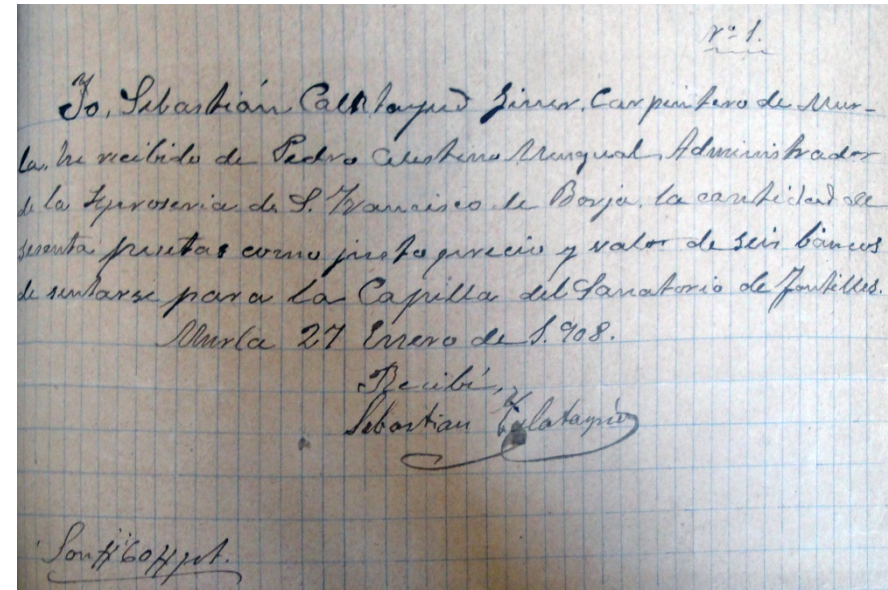 nº 1.
Yo, Sebastián Calatayud Giner, Carpintero de Mur-
la, he recibido de Pedro Celestino Mengual, Administrador
de la Leproseria de S. Francisco de Borja, la cantidad de
sesenta pesetas como justo precio y valor de seis bancos
de sentarse para la Capilla del Sanatorio de Fontilles.
Murla 27 Enero de 1.908.
Recibí,
Sebastian Calatayud
Son #60# pts.